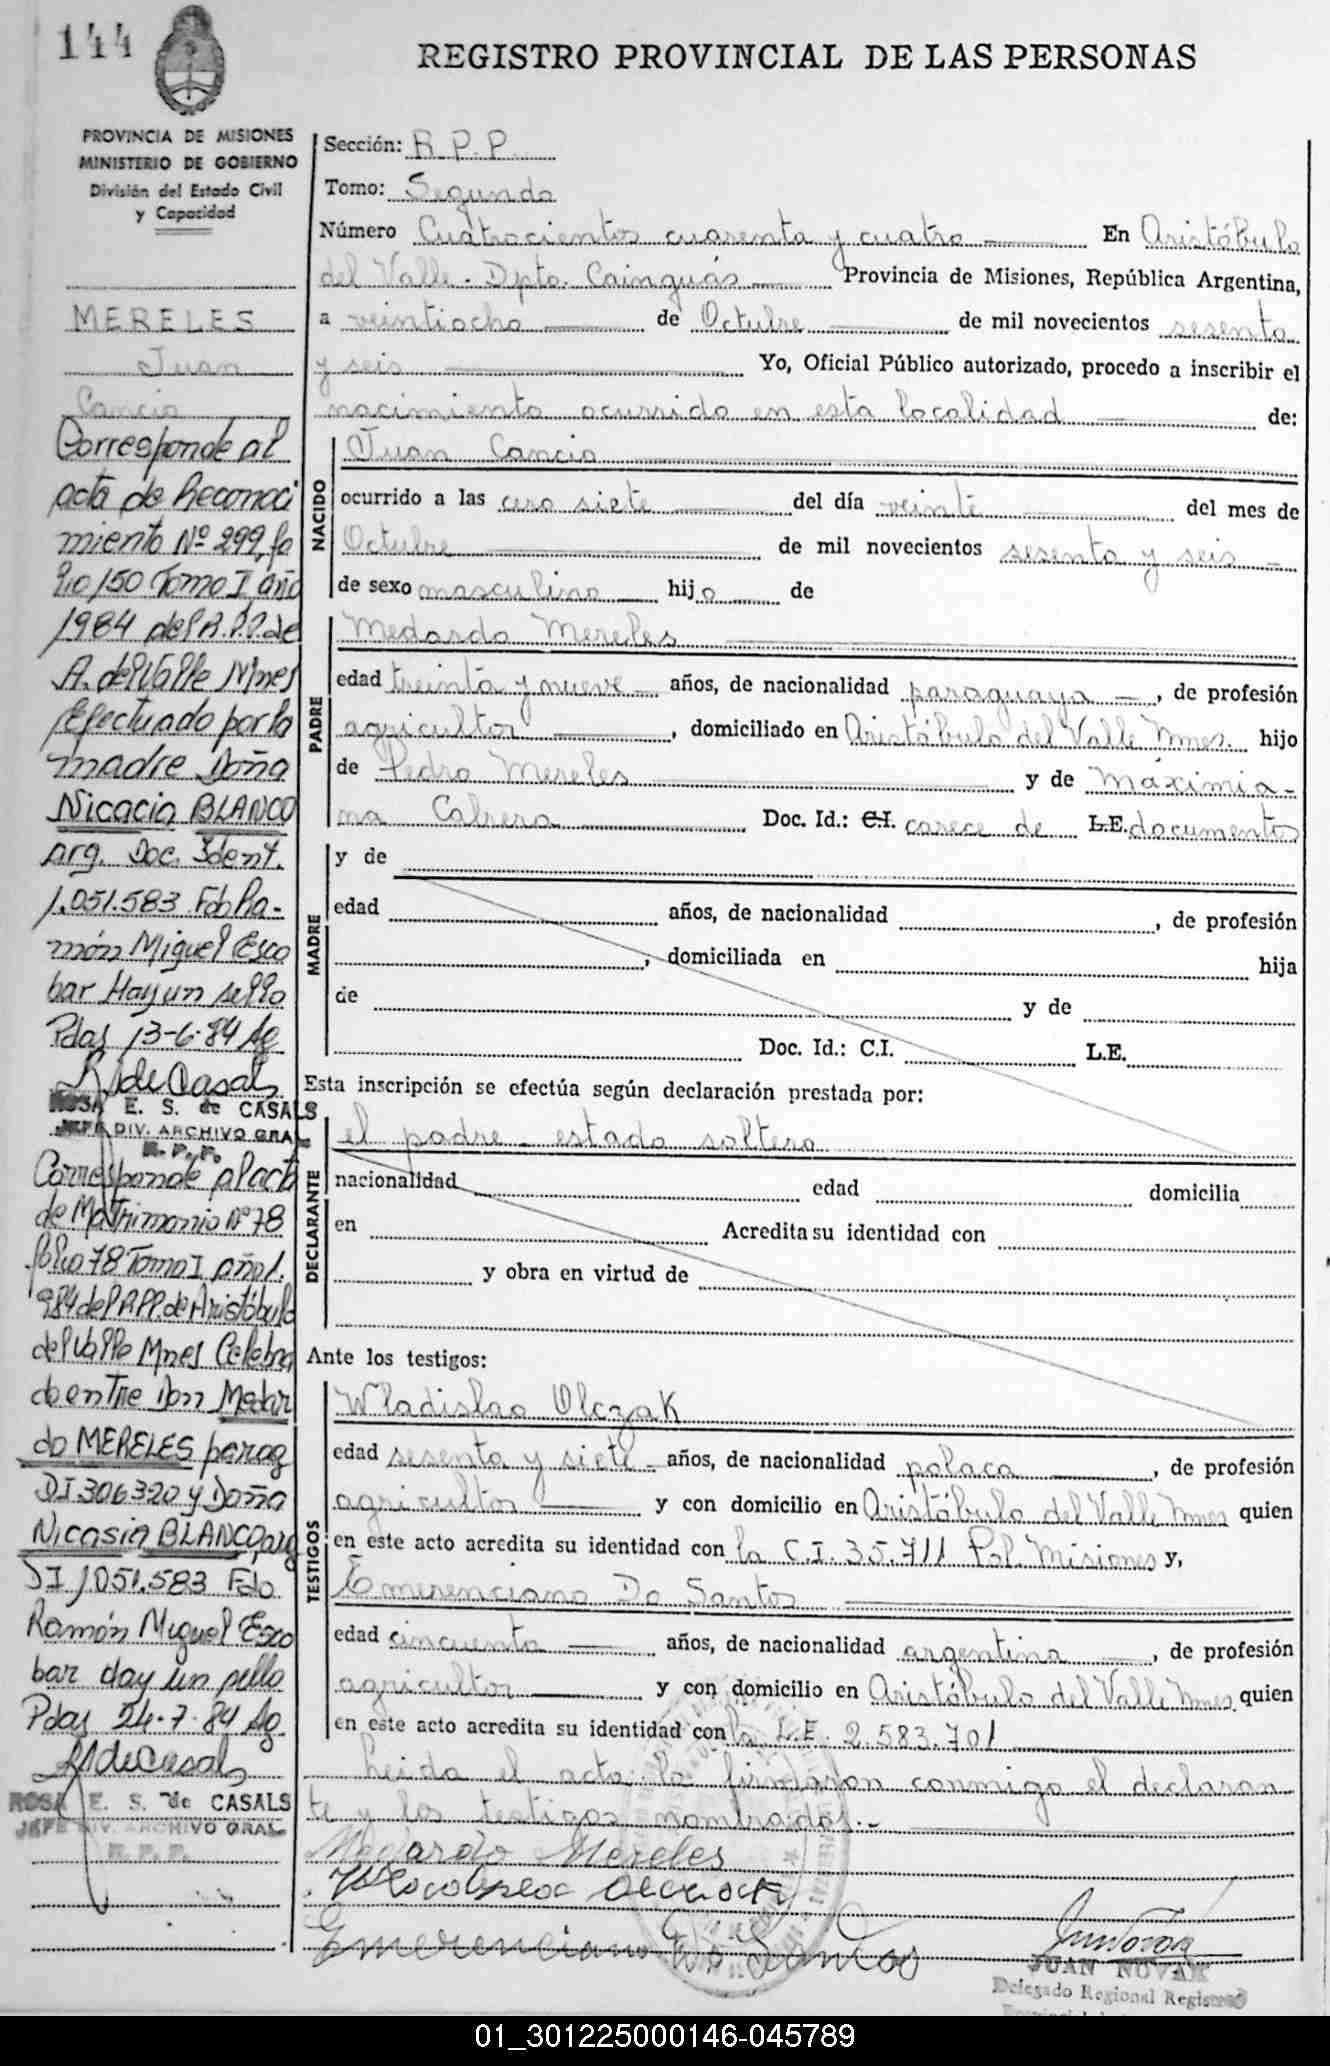 144
REGISTRO PROVINCIAL DE LAS PERSONAS
PROVINCIA DE MISIONES
MINISTERIO DE GOBIERNO
División del Estado Civil
y Capacidad
MERELES
Juan
Cancio
Corresponde al
acta de Reconoci
miento Nº 299, fo
lio 150 Tomo I año
1984 del R.P.P. de
A. del Valle Mnes
Efectuado por la
madre Doña
Nicacia BLANCO
arg. Doc. Ident.
1.051.583 Fdo Ra-
món Miguel Esco
bar Hay un sello
Pdas 13-6-84 Ag
R S de Casals
ROSA E. S. de CASALS
JEFE DIV. ARCHIVO GRAL
R. P. P.
Corresponde al acta
de Matrimonio Nº 78
folio 78 Tomo I año 1.
984 del R.P.P. de Aristóbulo
del Valle Mnes Celebra
do entre Don Medar
do MERELES parag
DI 306.320 y Doña
Nicasia BLANCO, arg
DI 1.051.583 Fdo.
Ramón Miguel Esco
bar Hay un sello
Pdas 24-7-84 Ag
RS de Casals
ROSA E. S. de CASALS
JEFE DIV. ARCHIVO GRAL.
R. P. P.
Sección: R.P.P.
Tomo: Segundo
Número Cuatrocientos cuarenta y cuatro En Aristóbulo
del Valle - Dpto. Cainguás Provincia de Misiones, República Argentina,
a veintiocho de Octubre de mil novecientos sesenta
y seis Yo, Oficial Público autorizado, procedo a inscribir el
nacimiento ocurrido en esta localidad de:
NACIDO
Juan Cancio
ocurrido a las cero siete del día veinte del mes de
Octubre de mil novecientos sesenta y seis -
de sexo masculino hijo de
PADRE
Medardo Mereles
edad treinta y nueve años, de nacionalidad paraguaya, de profesión
agricultor, domiciliado en Aristóbulo del Valle Mnes. hijo
de Pedro Mereles y de Máximia-
na Cabrera Doc. Id.: C.I. carece de L.E. documentos
MADRE
y de
edad años, de nacionalidad , de profesión
, domiciliada en hija
de y de
Doc. Id.: C.I. L.E.
Esta inscripción se efectúa según declaración prestada por:
DECLARANTE
el padre - estado soltero
nacionalidad edad domicilia
en Acredita su identidad con
y obra en virtud de
Ante los testigos:
TESTIGOS
Wladislao Olczak
edad sesenta y siete años, de nacionalidad polaca, de profesión
agricultor y con domicilio en Aristóbulo del Valle Mnes quien
en este acto acredita su identidad con la C.I. 35.711 Pol. Misiones y,
Emerenciano Do Santos
edad cincuenta años, de nacionalidad argentina, de profesión
agricultor y con domicilio en Aristóbulo del Valle Mnes. quien
en este acto acredita su identidad con la L.E. 2.583.701
Leida el acta la firmaron conmigo el declaran
te y los testigos nombrados.-
Medardo Mereles
Emerenciano Do Santos
JUAN NOVAK
Delegado Regional Registro
01_301225000146-045789